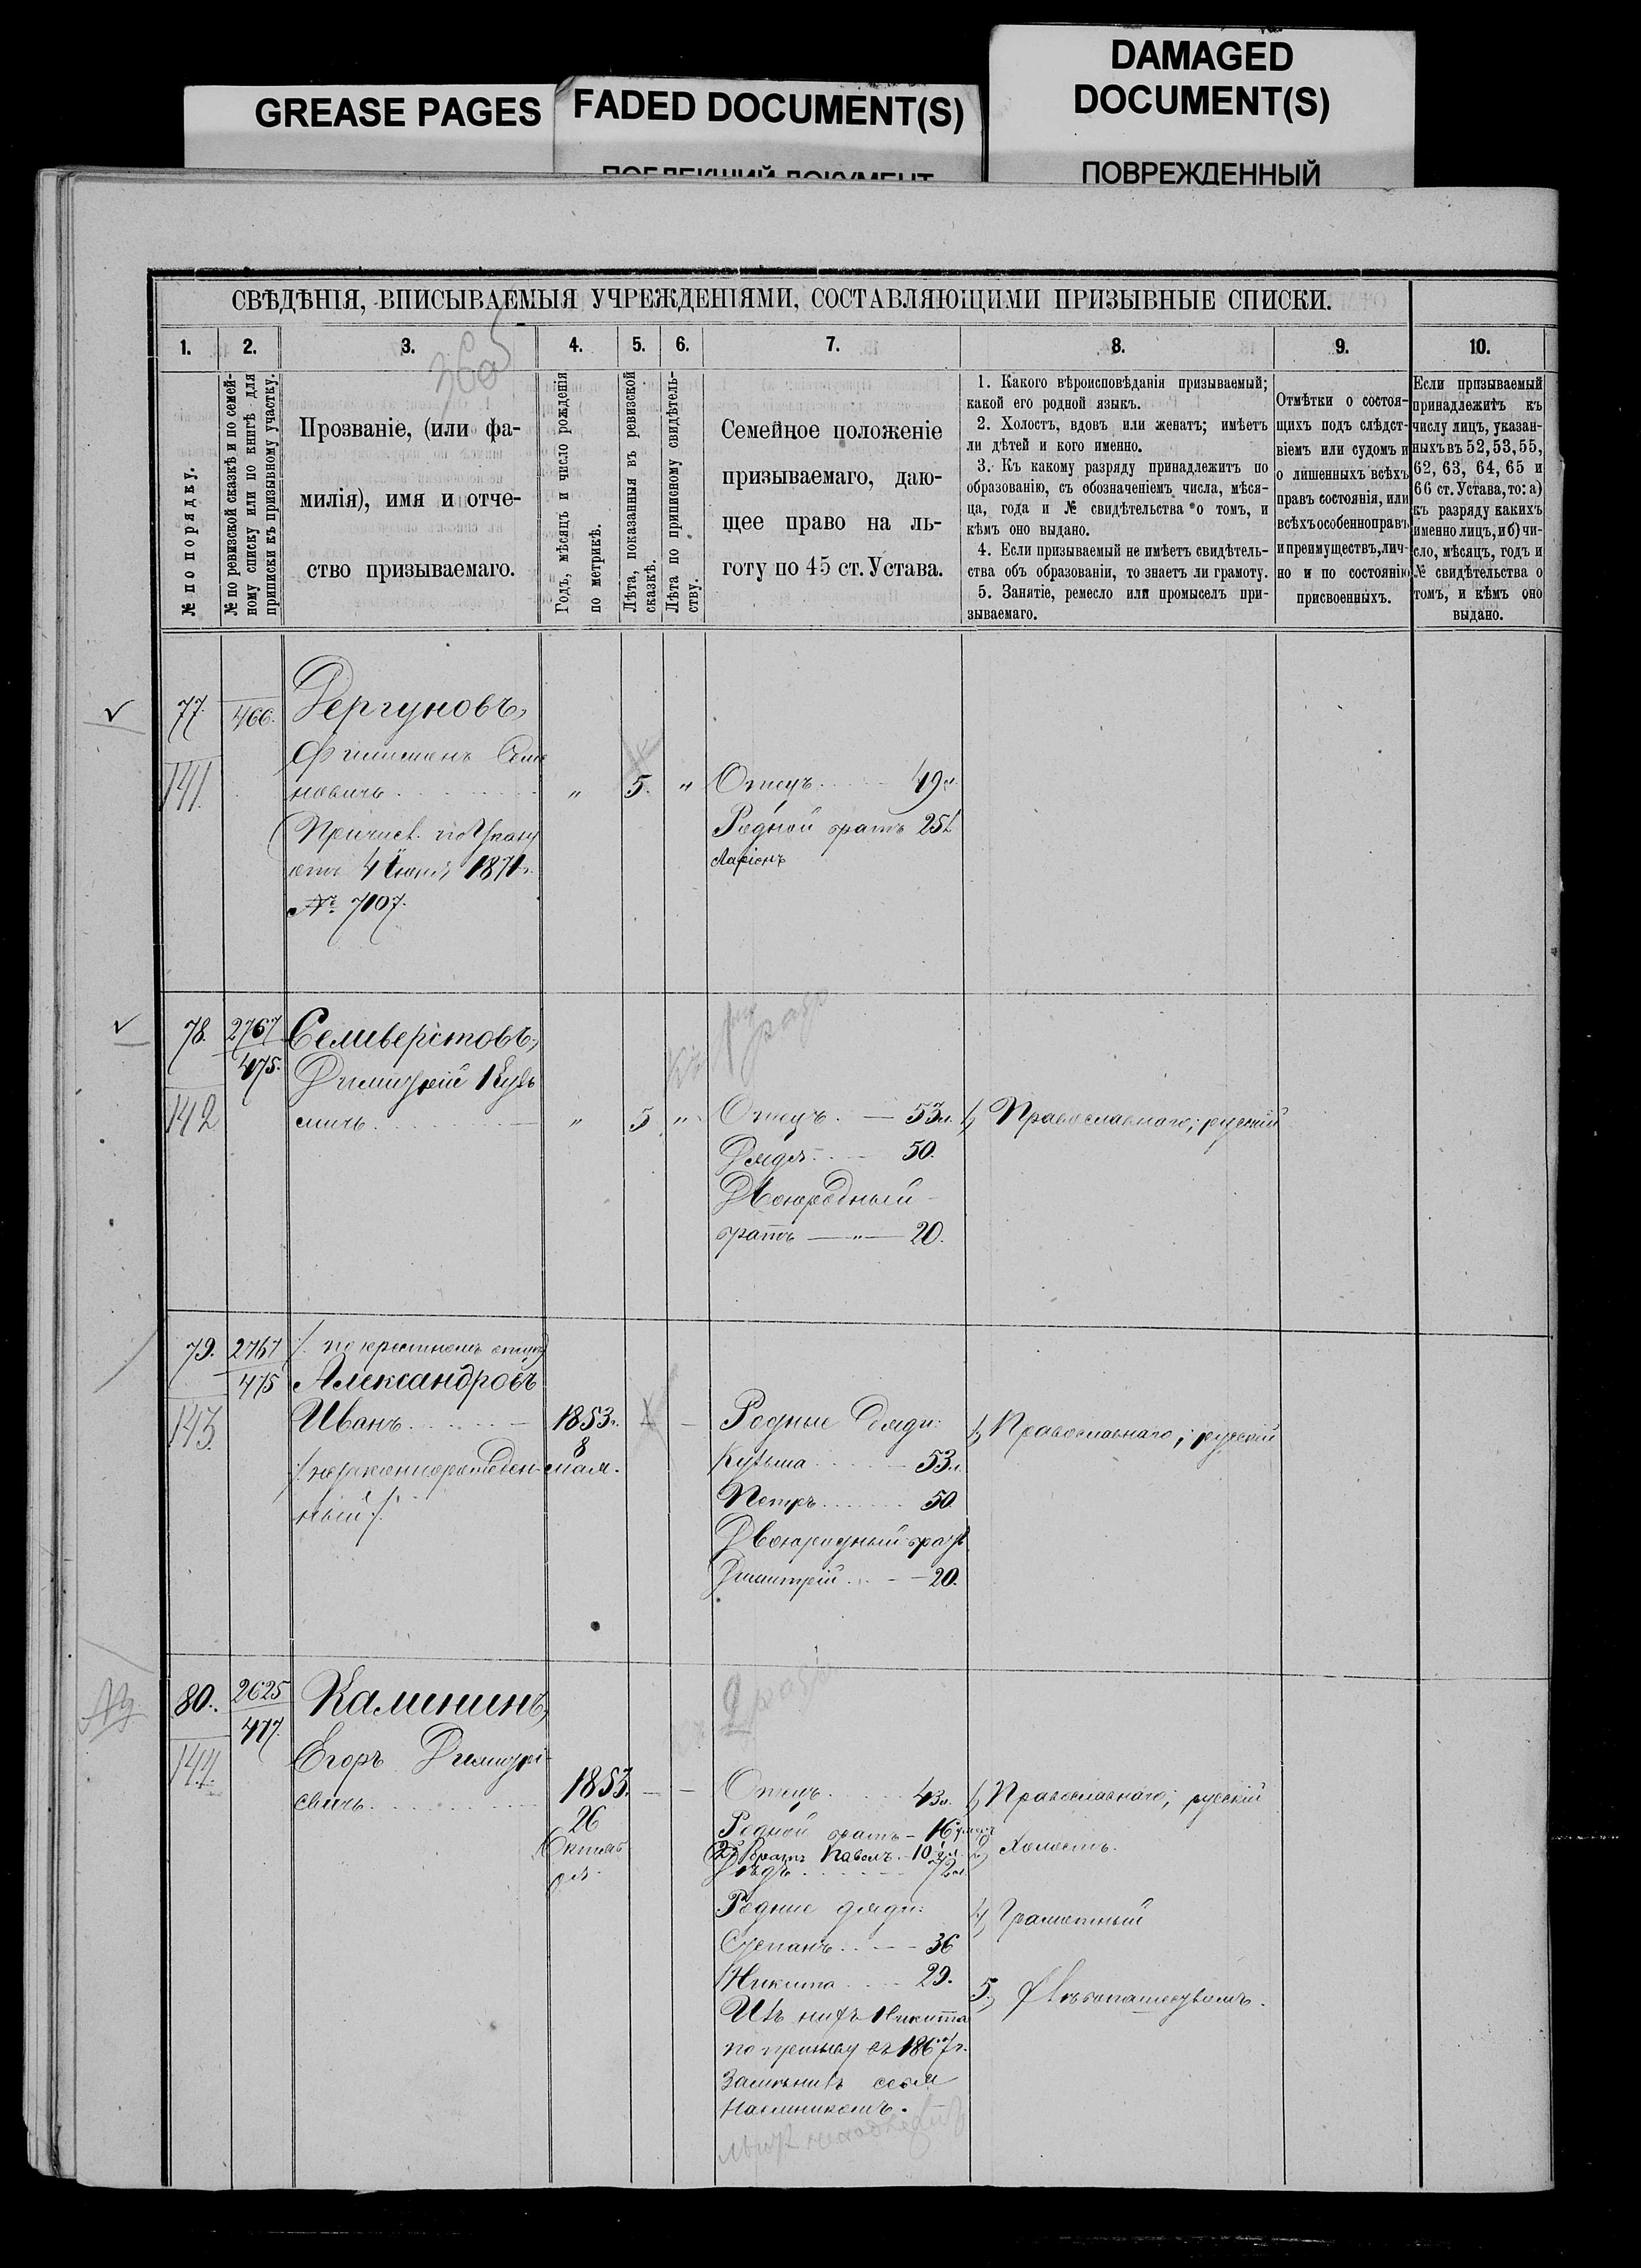 GREASE PAGES
FADED DOCUMENT(S)
ПОБЛЕКШИЙ ДОКУМЕНТ
DAMAGED
DOCUMENT(S)
ПОВРЕЖДЕННЫЙ
СВѢДѢНІЯ, ВПИСЫВАЕМЫЯ УЧРЕЖДЕНІЯМИ, СОСТАВЛЯЮЩИМИ ПРИЗЫВНЫЕ СПИСКИ.
1. 2. 3. 4. 5. 6. 7. 8. 9. 10.
№ по порядку.
№ по ревизской сказкѣ и по семей-
ному списку или по книгѣ для
приписки къ призывному участку.
Прозваніе, (или фа-
милія), имя и отче-
ство призываемаго.
Годъ, мѣсяцъ и число рожденія
по метрикѣ.
Лѣта, показанныя въ ревизской
сказкѣ.
Лѣта по приписному свидѣтель-
ству.
Семейное положеніе
призываемаго, даю-
щее право на ль-
готу по 45 ст. Устава.
1. Какого вѣроисповѣданія призываемый;
какой его родной языкъ.
2. Холостъ, вдовъ или женатъ; имѣетъ
ли дѣтей и кого именно.
3. Къ какому разряду принадлежитъ по
образованію, съ обозначеніемъ числа, мѣся-
ца, года и № свидѣтельства о томъ, и
кѣмъ оно выдано.
4. Если призываемый не имѣетъ свидѣтель-
ства объ образованіи, то знаетъ ли грамоту.
5. Занятіе, ремесло или промыселъ при-
зываемаго.
Отмѣтки о состоя-
щихъ подъ слѣдст-
віемъ или судомъ и
о лишенныхъ всѣхъ
правъ состоянія, или
всѣхъ особенно правъ
и преимуществъ, лич-
но и по состоянію
присвоенныхъ.
Если призываемый
принадлежитъ къ
числу лицъ, указан-
ныхъ въ 52, 53, 55,
62, 63, 64, 65 и
66 ст. Устава, то: а)
къ разряду какихъ
именно лицъ, и б) чи-
сло, мѣсяцъ, годъ и
№ свидѣтельства о
томъ, и кѣмъ оно
выдано.
77. 466. Дергуновъ,
141
новичъ " 5. " Отецъ 49 л.
Родной братъ 25 л
Ларіонъ
Причисл. по Указу
отъ 4 Іюня 1871 г.
№ 7107.
78. 2767 Селиверстовъ,
475. Димитрій Кузь
142 мичъ " 5 " Отецъ 53 л. 1, Православнаго; русскій
Дядя 50.
Двоюродный
братъ — " — 20.
79. 2767 /. по крестномъ отцу
475 Александровъ
143 Иванъ 1853 г. Родные дяди: 1, Православнаго; русскій
8
/незаконнорожден- мая.
ный/.
Кузьма 53 л.
Петръ 50.
Двоюродный братъ
Дмитрій 20.
80. 2625 Калининъ,
477. Егоръ Димитрі-
144 евичъ 1853. — — Отецъ 43 л. 1, Православнаго; русскій
26
Октяб
ря.
Родной братъ - 16
2) Братъ Павелъ - 10 л. 2, Холостъ.
Дѣдъ 72 л.
Родные дяди: 4, Грамотный
Степанъ 36
Никита 29. 5, Хлѣбопашествомъ.
Изъ нихъ Никита
по призыву въ 1867 г.
Замѣнилъ себя
Наемникомъ.